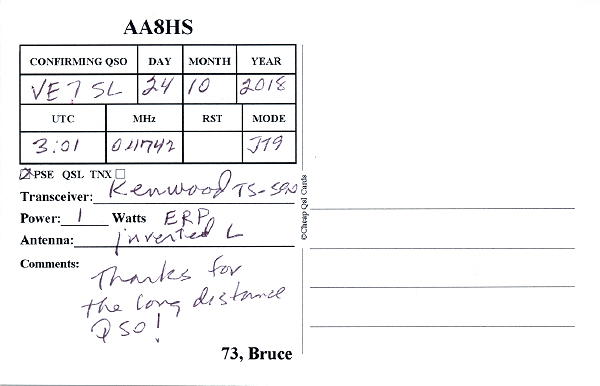 AA8HS
CONFIRMING QSO DAY MONTH YEAR
VE7SL 24 10 2018
UTC MHz RST MODE
3:01 0.11742 JT9
☒PSE QSL TNX☐
Transceiver: Kenwood TS-590
Power: 1 Watts ERP
Antenna: inverted L
Comments: Thanks for
the long distance
QSO!
73, Bruce
©Cheap Qsl Cards